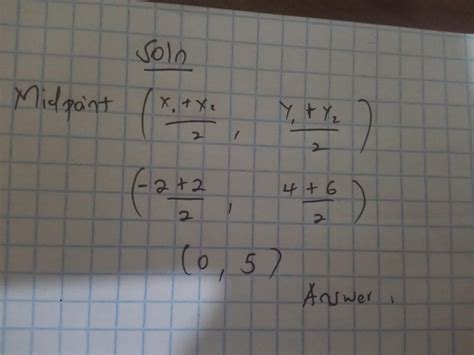 Soln
Midpoint (x₁ + x₂/2, y₁ + y₂/2)
(-2+2/2, 4+6/2)
(0, 5)
Answer.